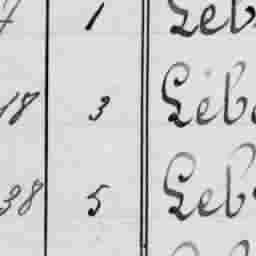 1 Leb
18 3 Leb
38 5 Leb